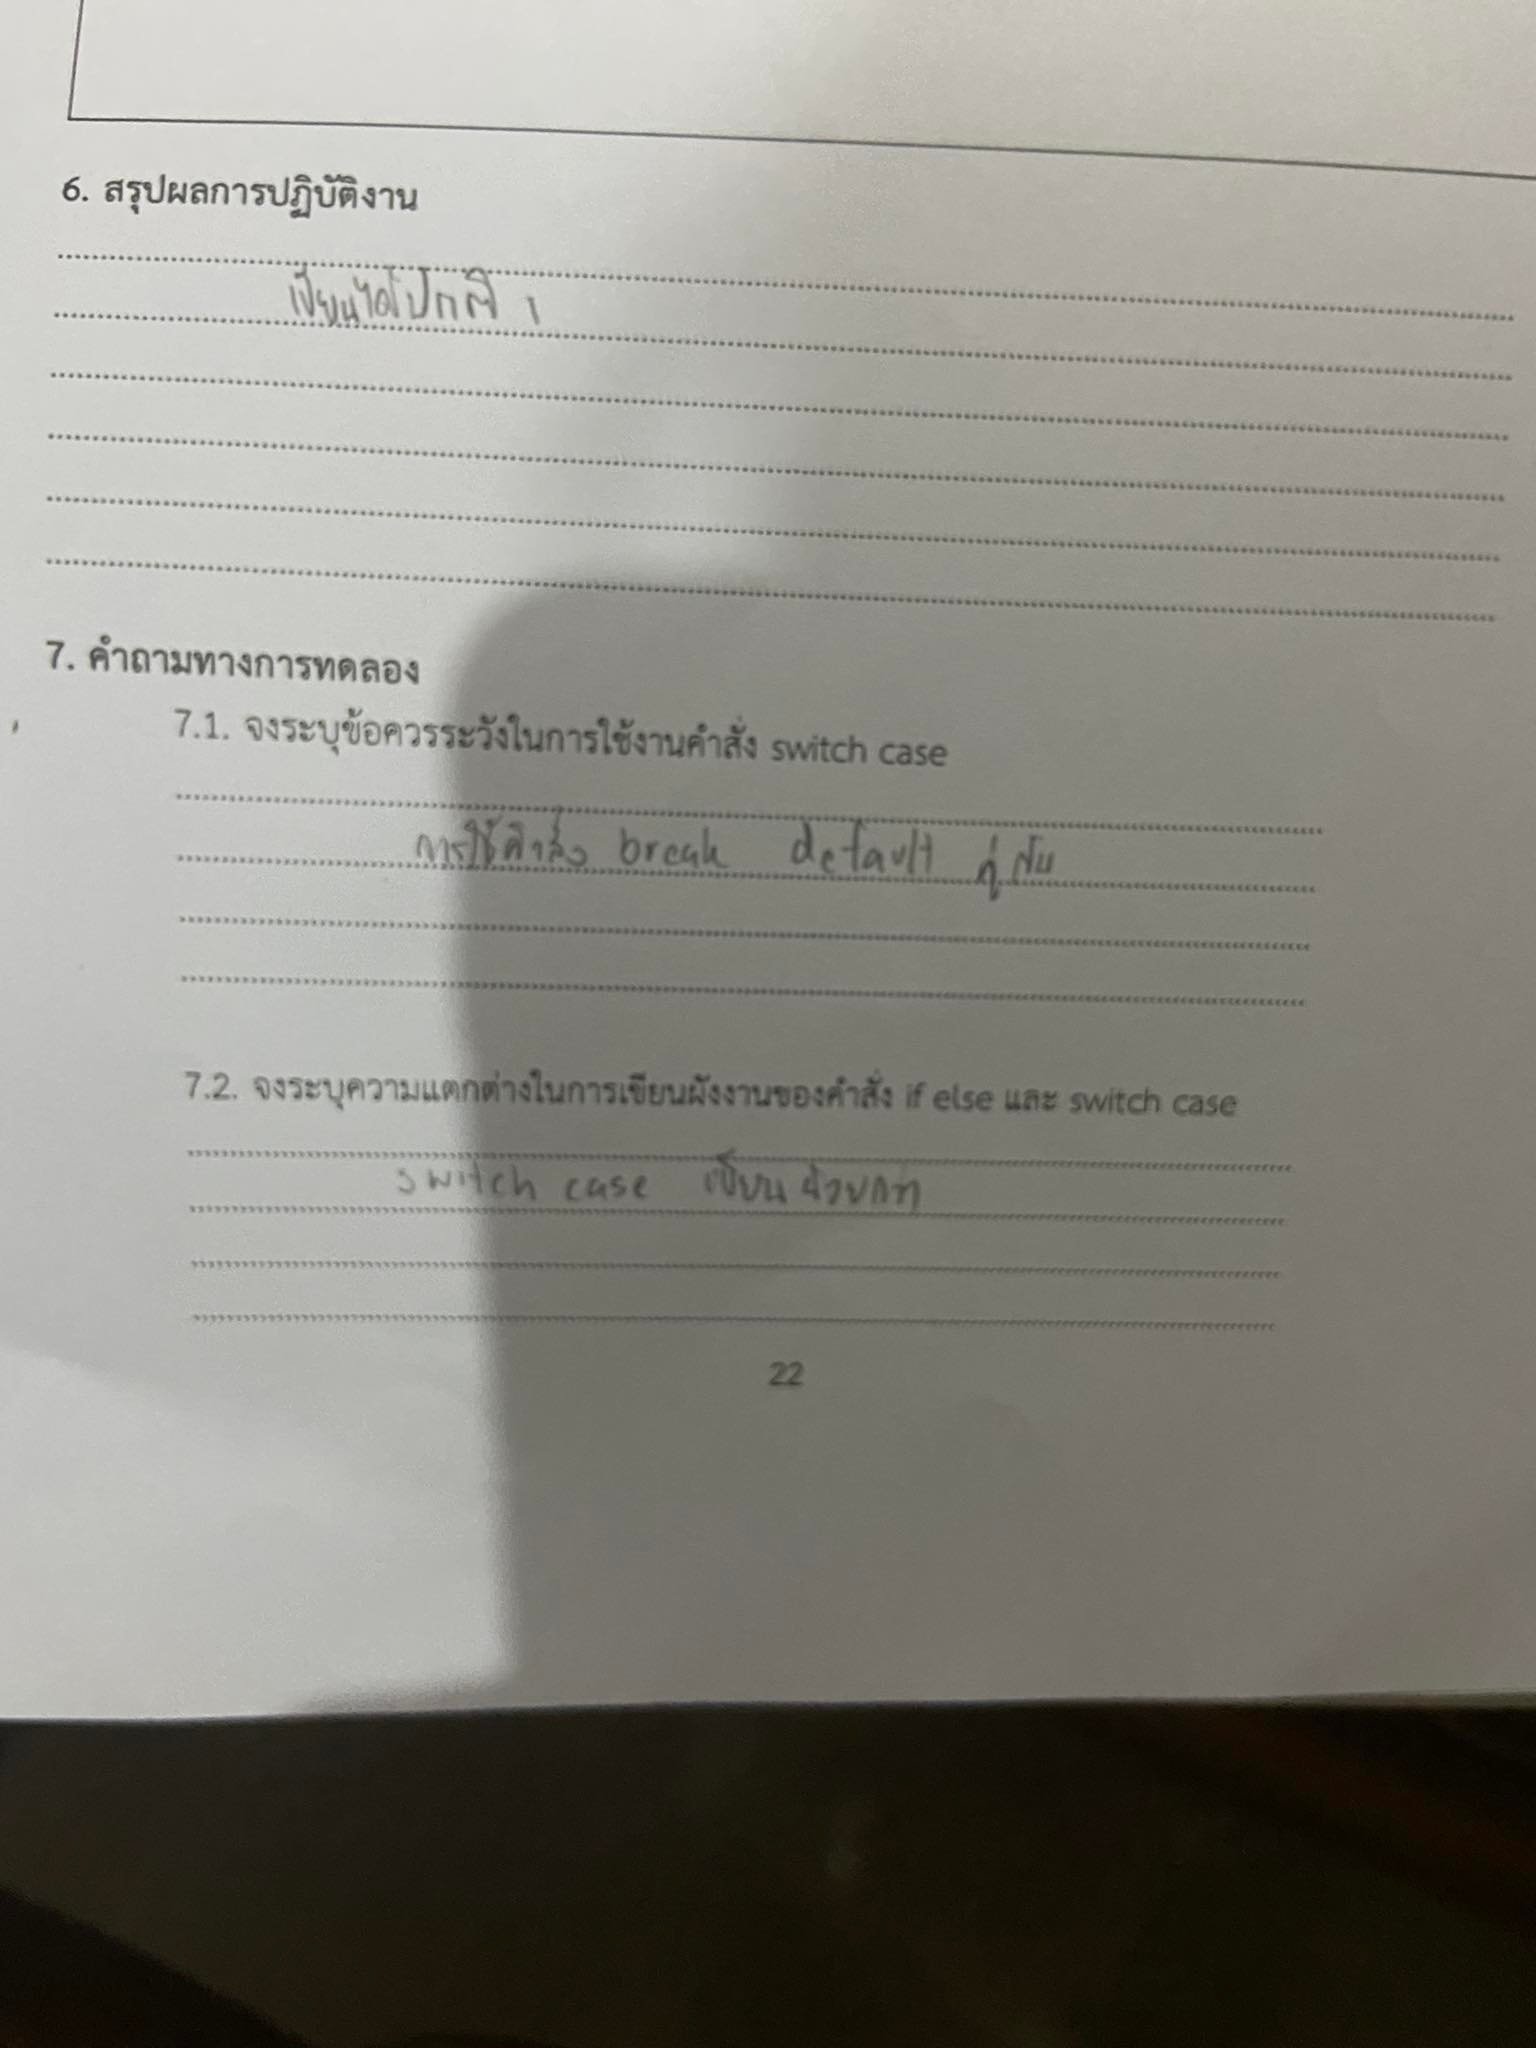 6. สรุปผลการปฏิบัติงาน
เขียนได้ปกติ
7. คำถามทางการทดลอง
7.1. จงระบุข้อควรระวังในการใช้งานคำสั่ง switch case
การใช้คำสั่ง break default คู่กัน
7.2. จงระบุความแตกต่างในการเขียนผังงานของคำสั่ง if else และ switch case
switch case เขียนง่ายกว่า
22